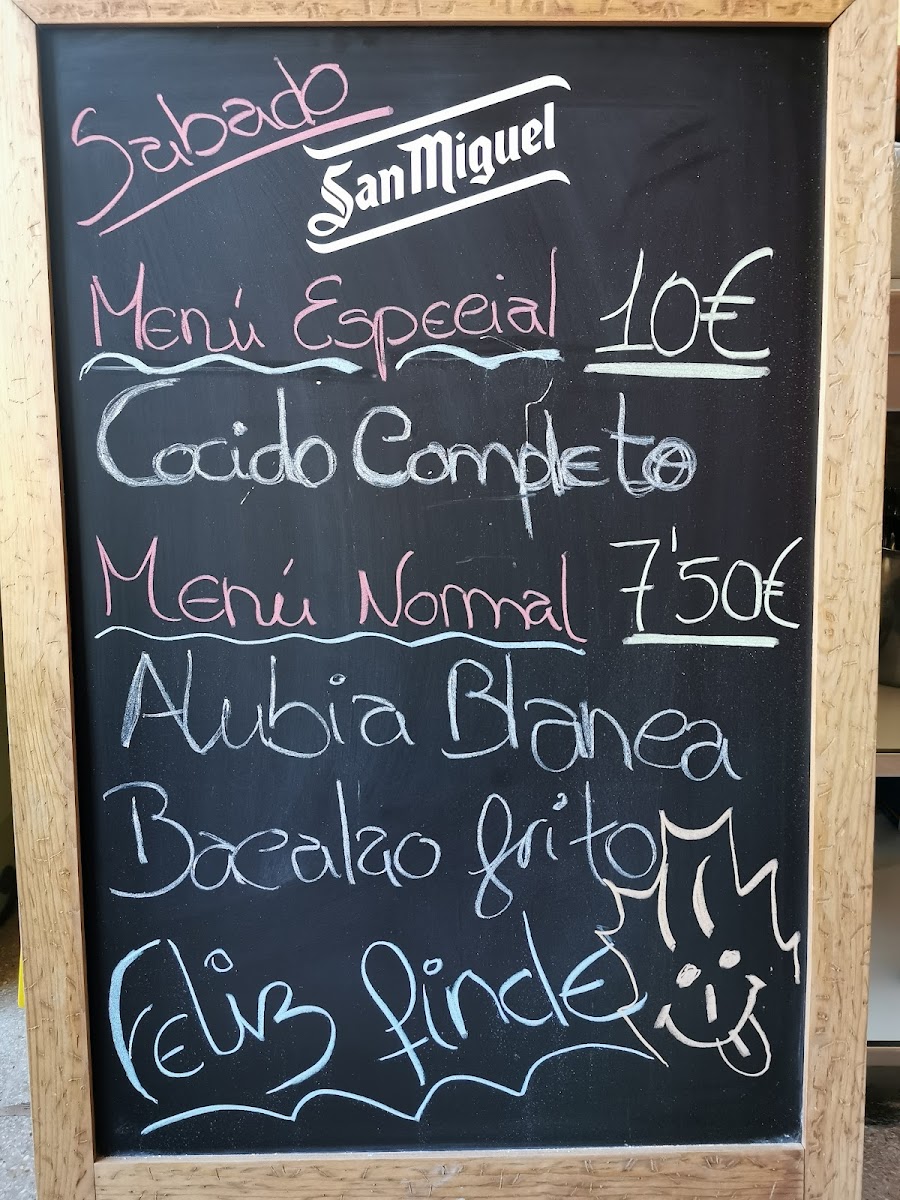 Sabado
San Miguel
Menú Especial 10€
Cocido Completo
Menú Normal 7'50€
Alubia Blanca
Bacalao frito
Feliz finde